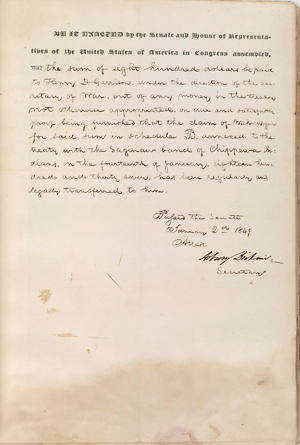 BE IT ENACTED by the Senate and House of Representa-
tives of the United States of America in Congress assembled,
THAT the sum of eight hundred dollars be paid
to Henry D. Garrison, under the direction of the Sec-
retary of War, out of any money in the treasury
not otherwise appropriated, on due and satisfactory
proof being furnished that the claim of
for said sum in schedule B. annexed to the
treaty with the Saginaw band of Chippewa In-
dians, on the fourteenth of January, eighteen hun-
dred and thirty seven, has been regularly and
legally transferred to him.
Passed the Senate
January 2nd 1849
Attest
Secretary